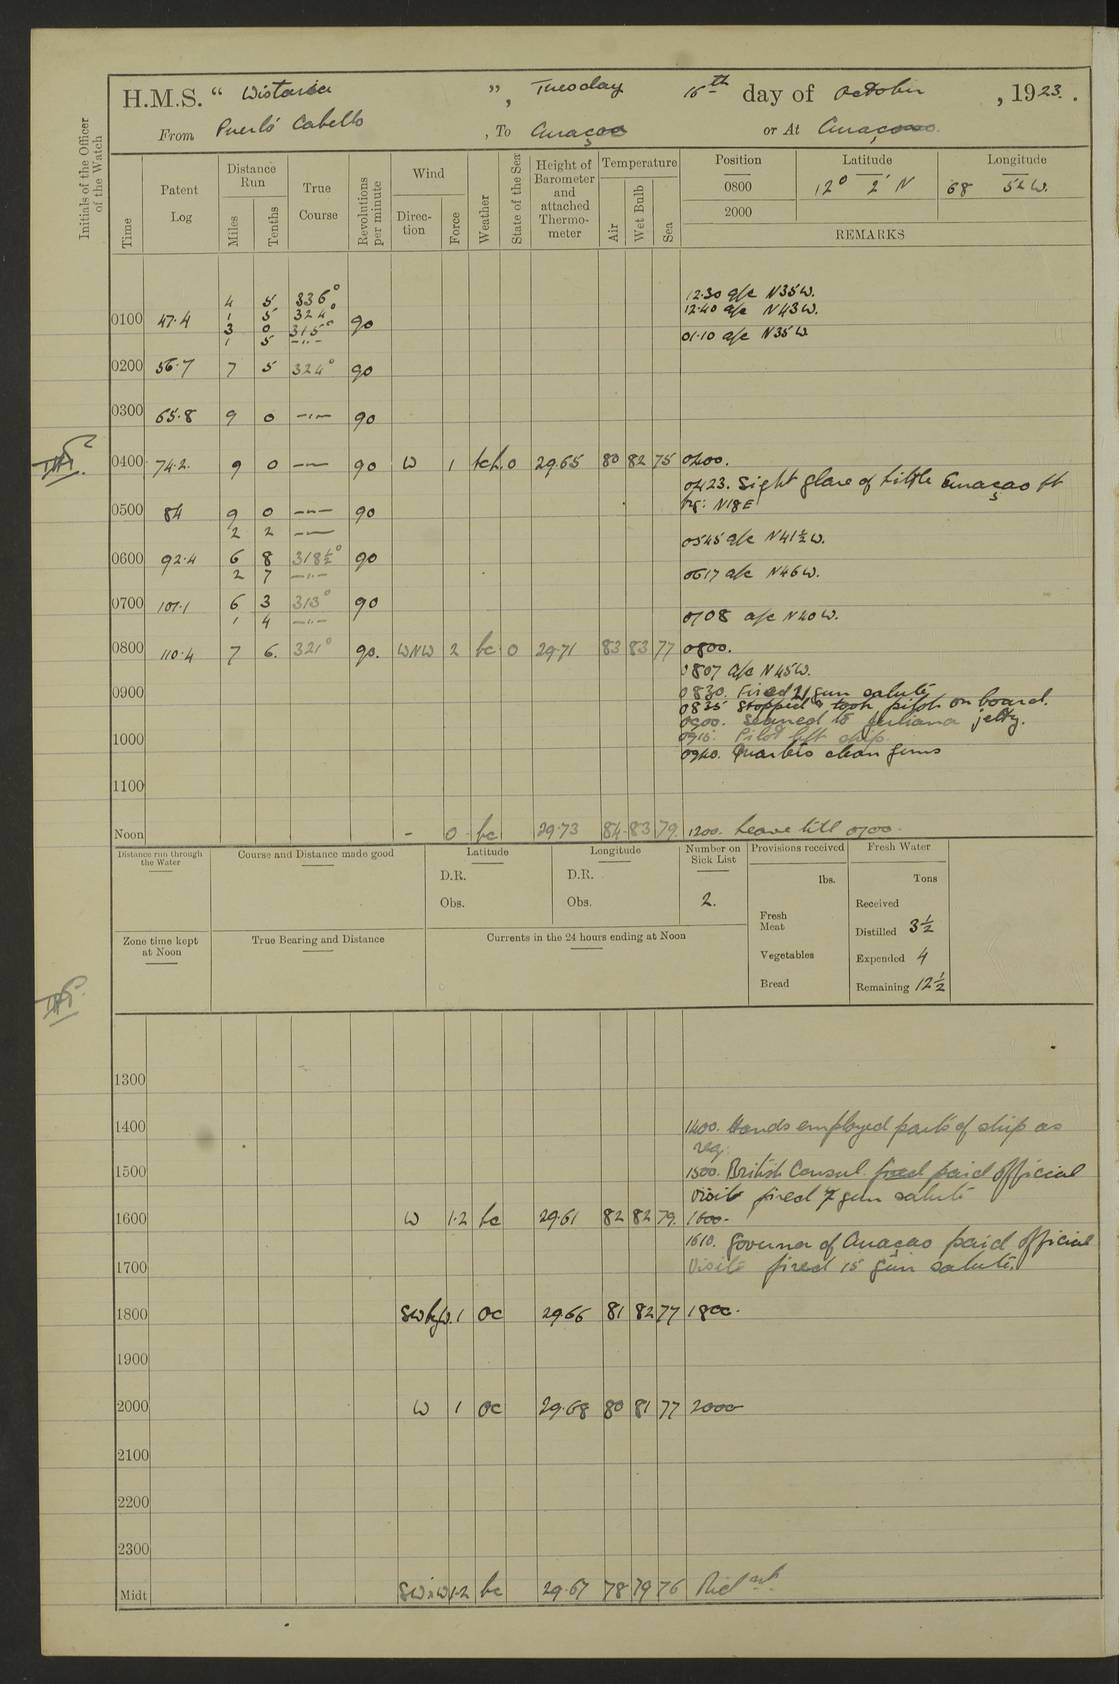 H.M.S. “ Wistaria ”, Tuesday 16th day of October, 1923.
From Puerto Cabello, To Curaçao or At Curaçao.
Initials of the Officer of the Watch
Time
Patent Log
Distance Run
Miles
Tenths
True Course
Revolutions per minute
Wind
Direction
Force
Weather
State of the Sea
Height of Barometer and attached Thermometer
Temperature
Air
Wet Bulb
Sea
Position Latitude Longitude
0800 12° 2' N 68 52 W.
2000
REMARKS
4 5 336° 12.30 a/c N35W.
1 5 324° 12.40 a/c N43W.
0100 47.4 3 0 315° 90
1 5 -"- 01.10 a/c N35W
0200 56.7 7 5 324° 90
0300 65.8 9 0 -"- 90
0400 74.2. 9 0 -"- 90 W 1 bch. 0 29.65 80 82 75 0400.
0423. Sight glare of Little Curaçao lt
brg: N18E
0500 84 9 0 -"- 90
2 2 -"- 0545 a/c N41½W.
0600 92.4 6 8 318½° 90
2 7 -"- 0617 a/c N46W.
0700 101.1 6 3 313° 90
1 4 -"- 0708 a/c N20W.
0800 110.4 7 6. 321° 90. WNW 2 bc 0 29.71 83 83 77 0800.
0807 a/c N45W.
0830. Fired 21 gun salute
0900 0835 Stopped & took pilot on board.
0900. Secured to Juliana jetty.
1000 0915. Pilot left ship.
0940. Quarters clean guns
1100
Noon - 0 bc 29.73 84 83 79. 1200. Leave till 0700.
Distance run through the Water
Course and Distance made good
Latitude
D.R.
Obs.
Longitude
D.R.
Obs.
Number on Sick List
2.
Provisions received
lbs.
Fresh Meat
Vegetables
Bread
Fresh Water
Tons
Received
Distilled 3½
Expended 4
Remaining 12½
Zone time kept at Noon
True Bearing and Distance
Currents in the 24 hours ending at Noon
1300
1400 1400. Hands employed parts of ship as
req.
1500 1500. British Consul fired paid official
visit fired 7 gun salute
1600 W 1.2 bc 29.61 82 82 79. 1600.
1610. Governor of Curaçao paid official
1700 visit fired 15 gun salute.
1800 SWbyW. 1 oc 29.66 81 82 77 1800.
1900
2000 W 1 oc 29.68 80 81 77 2000
2100
2200
2300
Midt 1-2 bc 29.67 78 79 76